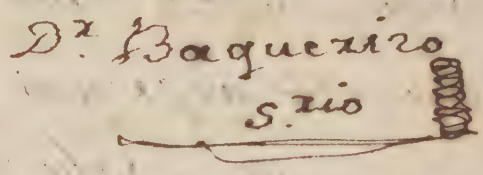 D.r Baquerizo
S.rio